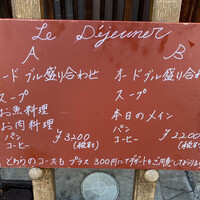 Le Déjeuner
A
オードブル盛り合わせ
スープ
お魚料理
お肉料理
パン
コーヒー
¥3200
(税別)
B
オードブル盛り合わせ
スープ
本日のメイン
パン
コーヒー
¥2200
(税別)
どちらのコースもプラス300円にてデザートをご用意しております